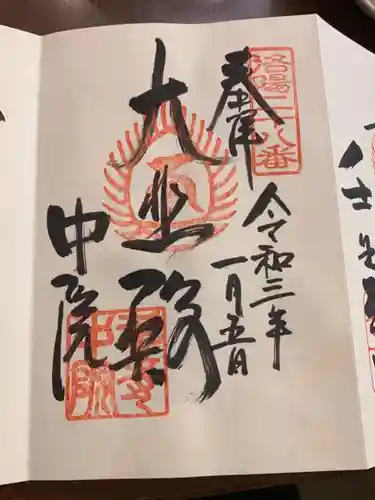 洛陽二八番
奉拝
令和三年
一月五日
大悲殿
中院